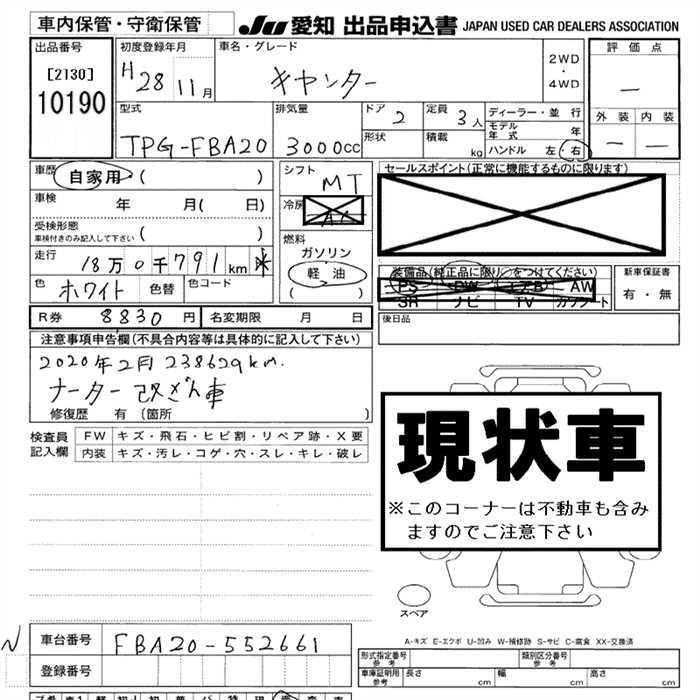 車内保管・守衛保管 JU 愛知 出品申込書 JAPAN USED CAR DEALERS ASSOCIATION
出品番号 [2130] 10190
初度登録年月 H28 11月
車名・グレード キャンター
2WD・4WD
評価点 ー
外装 内装
ー ー
型式 TPG-FBA20
排気量 3000cc
ドア 2
定員 3人
形状 積載 kg
ディーラー・並行
モデル年式 年
ハンドル 左・右
車歴 自家用 ( )
車検 年 月( 日)
受検形態 車検付きのみ記入して下さい ( )
走行 18万0千791km ※
色 ホワイト 色替 色コード
シフト MT
冷房
燃料 ガソリン
軽油
( )
セールスポイント(正常に機能するものに限ります)
装備品(純正品に限り○をつけてください)
PS PW エアB AW
SR ナビ TV カワシート
新車保証書
有・無
後日品
R券 8830円 名変期限 月 日
注意事項申告欄(不具合内容等は具体的に記入して下さい)
2020年2月 238629km.
メーター改ざん車
修復歴 有 (箇所 )
検査員記入欄
FW キズ・飛石・ヒビ割・リペア跡・X要
内装 キズ・汚レ・コゲ・穴・スレ・キレ・破レ
現状車
※このコーナーは不動車も含み
ますのでご注意下さい
スペア
A-キズ E-エクボ U-凹み W-補修跡 S-サビ C-腐食 XX-交換済
N 車台番号 FBA20-552661
登録番号
形式指定番号 参考
類別区分番号 参考
車庫証明用 参考 長さ cm 幅 cm 高さ cm